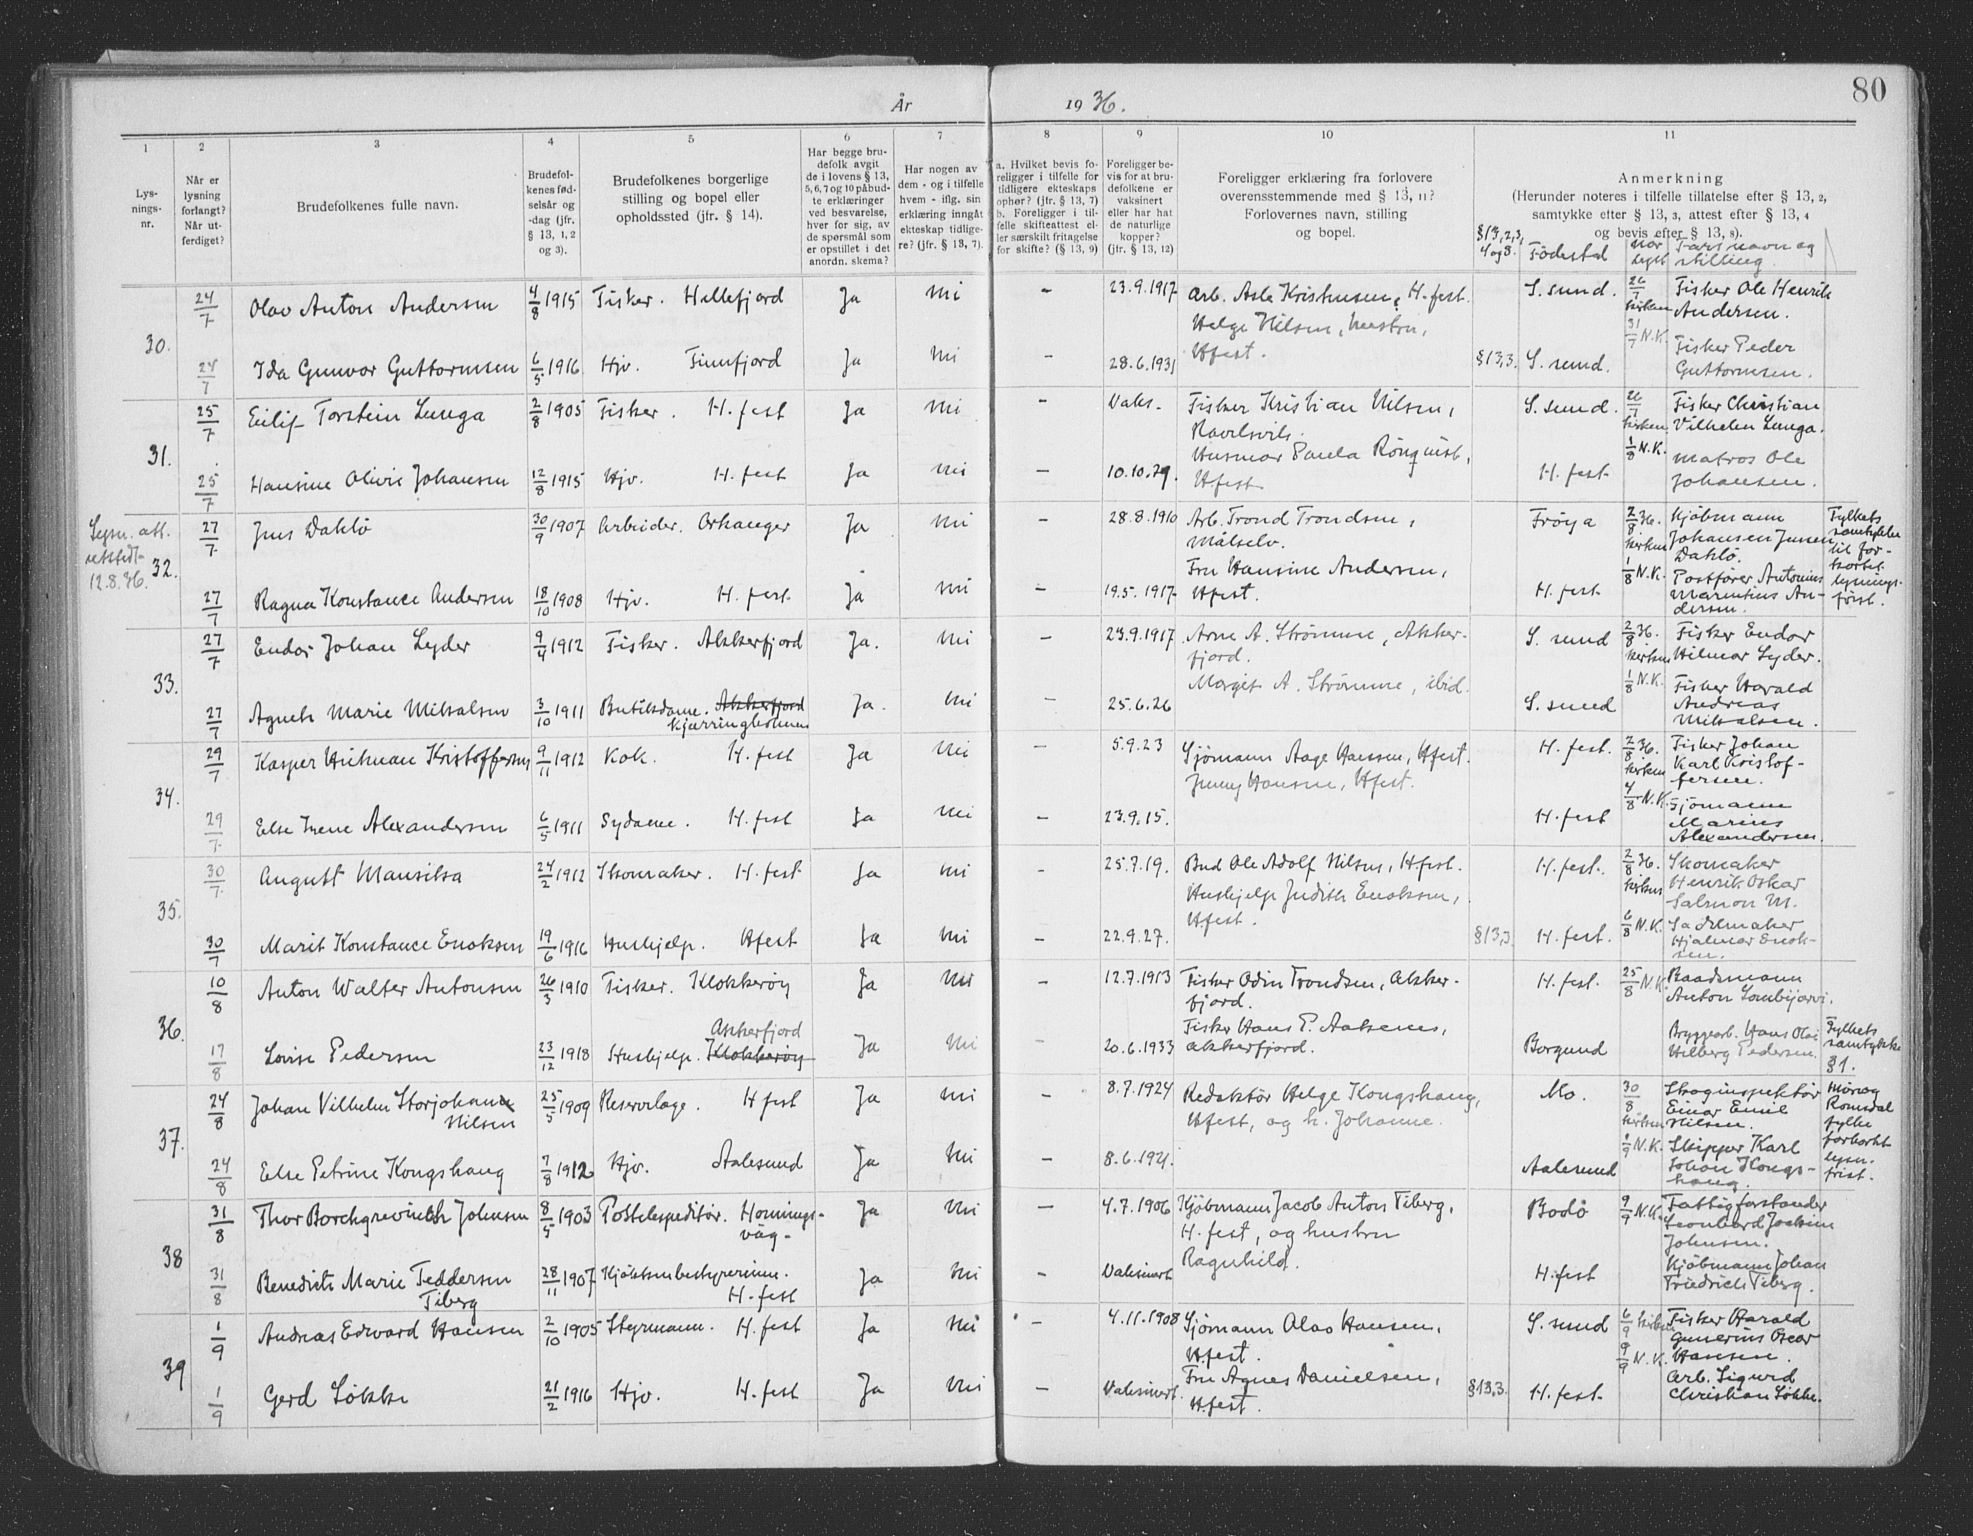 80
År 1936.
1 2 3 4 5 6 7 8 9 10 11
Lysningsnr.
Når er lysning forlangt? Når utferdiget?
Brudefolkenes fulle navn.
Brudefolkenes fødselsår og -dag (jfr. § 13, 1, 2 og 3).
Brudefolkenes borgerlige stilling og bopel eller opholdssted (jfr. § 14).
Har begge brudefolk avgit de i lovens § 13, 5, 6, 7 og 10 påbudte erklæringer ved besvarelse, hver for sig, av de spørsmål som er opstillet i det anordn. skema?
Har nogen av dem - og i tilfelle hvem - iflg. sin erklæring inngått ekteskap tidligere? (jfr. § 13, 7).
a. Hvilket bevis foreligger i tilfelle for tidligere ekteskaps ophør? (jfr. § 13, 7) b. Foreligger i tilfelle skifteattest eller særskilt fritagelse for skifte? (§ 13, 9)
Foreligger bevis for at brudefolkene er vaksinert eller har hat de naturlige kopper? (jfr. § 13, 12)
Foreligger erklæring fra forlovere overensstemmende med § 13, 11? Forlovernes navn, stilling og bopel.
Anmerkning (Herunder noteres i tilfelle tillatelse efter § 13, 2, samtykke efter § 13, 3, attest efter § 13, 4 og bevis efter § 13, 8).
§13,2,3, 4 og 8. Fødested Når lyst Fars navn og stilling.
30.
24/7 Olav Anton Andersen 4/8 1915 Fisker. Hellefjord Ja Nei - 23.9.1917 Arb. Asle Kristensen, H.fest. S.sund. 26/7 kirken Fisker Ole Henrik Andersen.
Helge Nilsen, Hfest. 31/7 N.K.
24/7 Ida Gunvor Guttormsen 6/5 1916 Hjv. Finnfjord Ja Nei - 28.6.1931 §13,3. S.sund. Fisker Peder Guttormsen.
31.
25/7 Eilif Torstein Lunga 2/8 1905 Fisker. H.fest Ja Nei - Vaks. Fisker Kristian Nilsen, S.sund. 26/7 kirken. Fisker Christian Vilhelm Lunga.
Husmor Paula Rönquist, Hfest 1/8 N.K.
25/7 Hansine Olivie Johansen 12/8 1915 Hjv. H.fest Ja Nei - 10.10.29. H.fest Matros Ole Johansen.
Lysn. att. utstedt 12.8.36.
32.
27/7 Jens Dahlø 30/9 1907 Arbeider. Orkanger Ja Nei - 28.8.1910 Arb. Trond Trondsen, Målselv. Frøya 2/8 36. kirken Kjøbmann Johansen Jensen Dahlø.
Fylkets samtykke til forkortet lysningsfrist.
27/7 Ragna Konstance Andersen 18/10 1908 Hjv. H.fest. Ja Nei - 19.5.1917 Fru Hansine Andersen, Hfest. H.fest 1/8 N.K. Postfører Antonius Marentius Andersen.
33.
27/7 Endor Johan Lyder 9/4 1912 Fisker. Akkerfjord Ja. Nei - 23.9.1917 Arne A. Strømme, Akkerfjord. S.sund 2/8 36. kirken Fisker Endor Hilmar Lyder.
Margit A. Strømme, ibid. 1/8 N.K.
27/7 Agneth Marie Mikalsen 3/10 1911 Butikdame. Akkerfjord Kjærringholmen Ja. Nei - 25.6.26 S.sund Fisker Harald Andreas Mikalsen.
34.
29/7 Kasper Hickman Kristoffersen 9/11 1912 Kok. H.fest Ja Nei - 5.9.23 Sjømann Aage Hansen, Hfest. H.fest. 2/8 36. kirken Fisker Johan Karl Kristoffersen.
Jenny Hansen, Hfest. 4/8 N.K.
29/7 Else Irene Alexandersen 6/5 1911 Sydame. H.fest Ja Nei - 23.9.15. H.fest Sjømann Marius Alexandersen.
35.
30/7 August Mansikka 24/2 1912 Skomaker. H.fest Ja Nei - 25.7.19. Bud Ole Adolf Nilsen, Hfest. H.fest. 2/8 36. kirken Skomaker Henrik Oskar Salmon M.
Hushjelp Judith Enoksen, Hfest. 6/8 N.K.
30/7 Marit Konstance Enoksen 19/6 1916 Hushjelp. Hfest Ja Nei - 22.9.27. §13,3 H.fest. Sadelmaker Hjalmar Enoksen.
36.
10/8 Anton Walter Antonsen 26/3 1910 Fisker. Klokkerøy Ja Nei - 12.7.1913 Fisker Odin Trondsen, Akkerfjord. H.fest. 25/8 N.K. Baadsmann Anton Lombijarvi.
17/8 Lovise Pedersen 23/12 1918 Hushjelp. Klokkerøy Akkerfjord Ja Nei - 20.6.1933 Fisker Hans P. Aakenes, Akkerfjord. Borgund Bryggearb. Hans Olai Hilberg Pedersen. Fylkets samtykke §1.
37.
24/8 Johan Vilhelm Storjohann Nilsen 25/5 1909 Reservelæge. Hfest Ja Nei - 8.7.1924 Redaktør Helge Kongshaug, Hfest, og h. Johanne. Mo. 30/8 kirken Skoginspektør Einar Emil Nilsen. Møre og Romsdal fylke forkortet lysn. frist.
24/8 Else Petrine Kongshaug 7/8 1912 Hjv. Aalesund Ja Nei - 8.6.1921. Aalesund 1/9 N.K. Skipper Karl Johan Kongshaug.
38
31/8 Thor Borchgrevinck Johnsen 8/5 1903 Postekspeditør. Honningsvåg. Ja Nei - 4.7.1906 Kjøbmann Jacob Anton Tiberg, H.fest, og hustru Ragnhild. Bodø 9/9 N.K. Fattigforstander Leonhard Joakim Johnsen.
31/8 Benedicte Marie Feddersen Tiberg 28/11 1907 Kjøkkenbestyrerinne. H.fest Ja Nei - Vaksinert H.fest Kjøbmann Johan Friedrich Tiberg.
39
1/9 Andreas Edvard Hansen 2/10 1905 Styrmann. H.fest Ja Nei - 4.11.1908 Sjømann Olav Hansen, Hfest. S.sund 6/9 kirken Fisker Harald Gunerius Oscar Hansen.
9/9 N.K.
1/9 Gerd Løkke 21/2 1916 Hjv. H.fest Ja Nei - Vaksinert. Fru Agnes Danielsen, Hfest. §13,3. H.fest. Arb. Sigurd Christian Løkke.